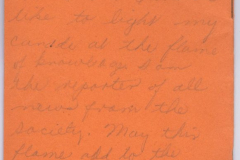 like to light my
candle at the flame
of knowledge. I am
the reporter of all
news from the
society. May this
flame add to the